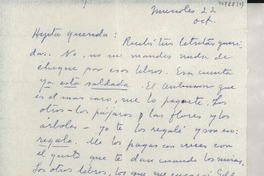 Miercoles 22
oct.
Hijita querida: Recibí tus letritas queri-
das. No, no me mandes nada de
cheque por esos libros. Esa cuenta
ya está saldada. El Audubon que
es el mas caro, me lo pagaste. Los
otros - los pájaros y las flores y los
árboles - yo te los regalé y son mi
regalo. Me los pagas con creces con
el gusto que te dan cuando los miras.
dos otros libros, los que me encargó